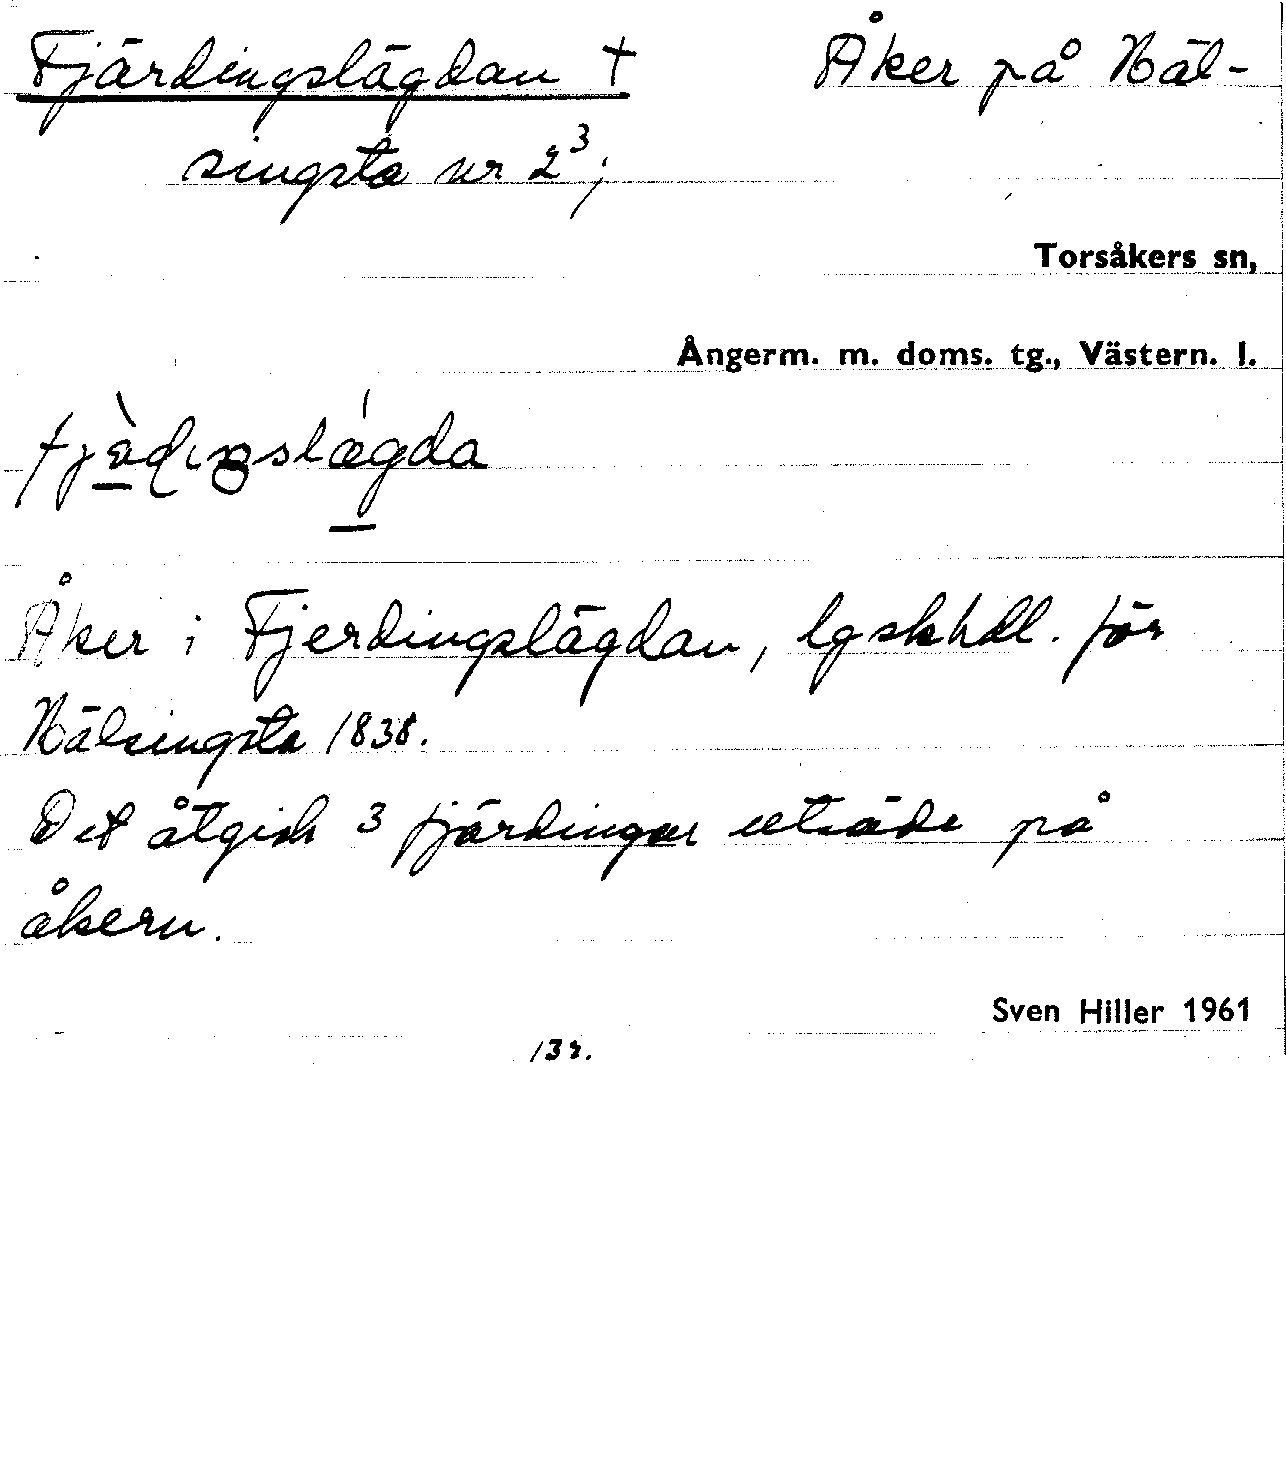 Fjärdingslägdan † Åker på Häl-
singsta nr 2³;
Torsåkers sn,
Ångerm. m. doms. tg., Västern. l.
Åker i Fjerdingslägdan, lgskhdl. för
Hälsingsta 1838.
Det åtgick 3 fjärdingar utsäde på
åkern.
Sven Hiller 1961